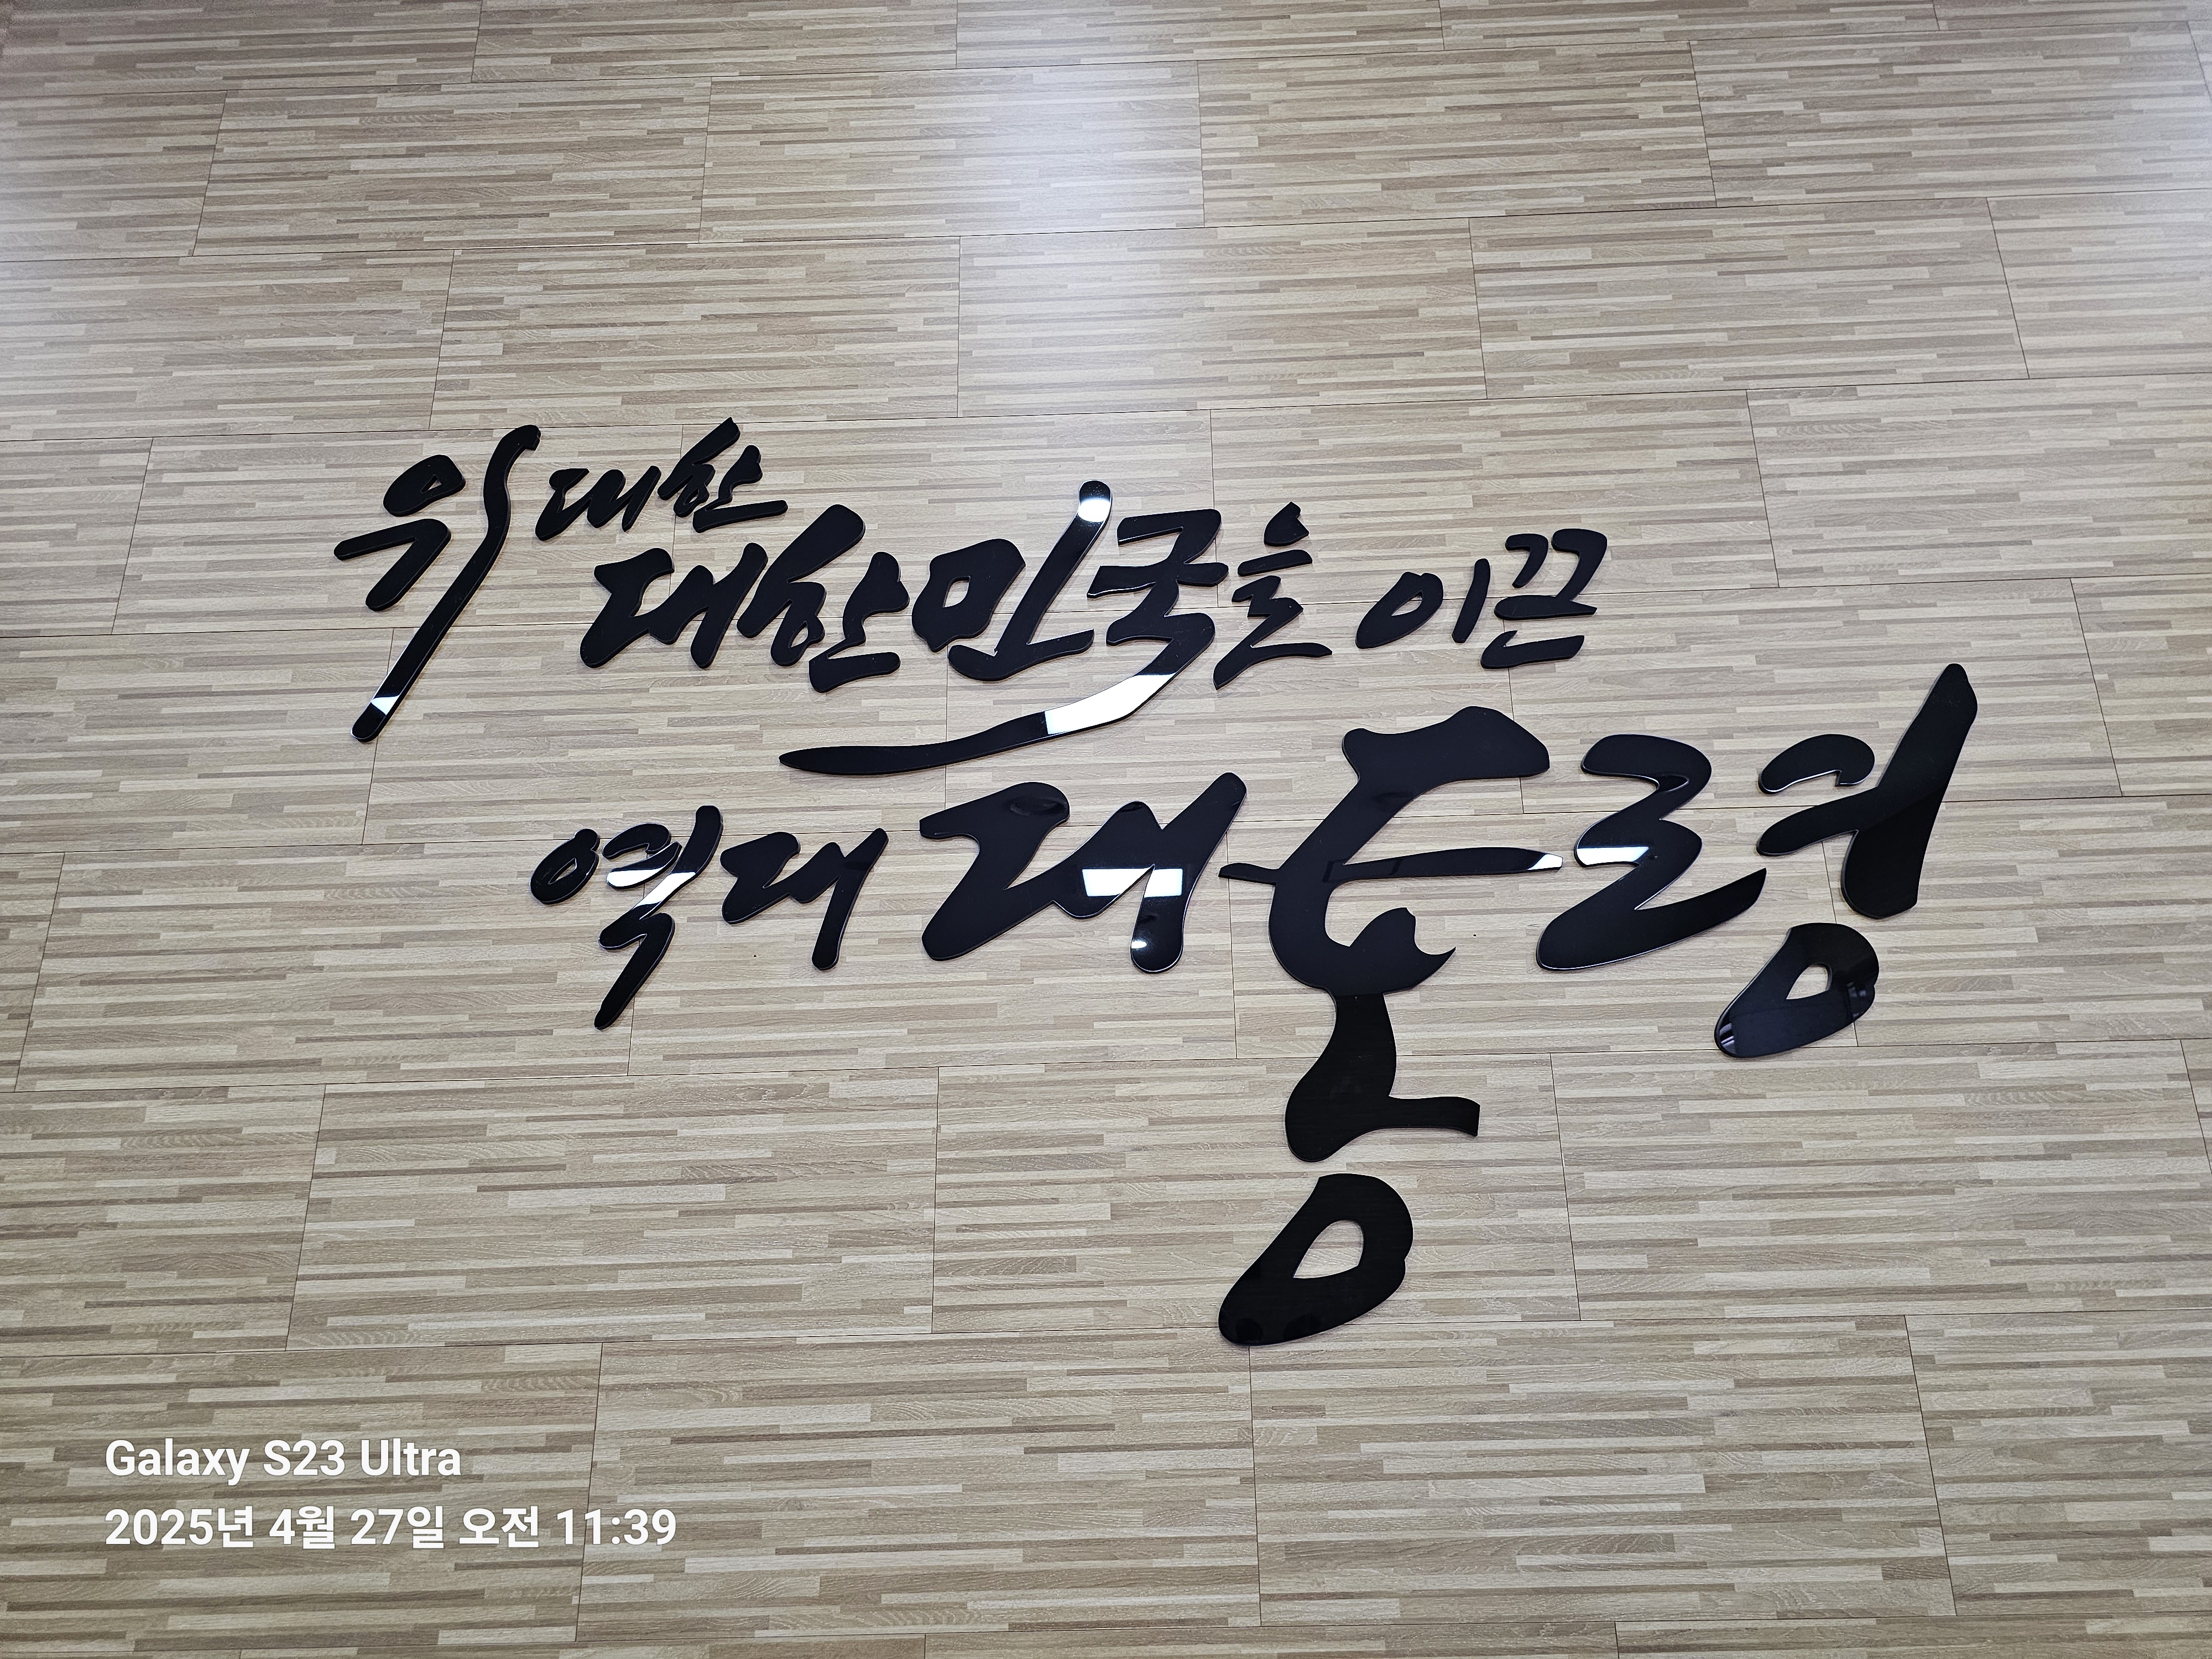 위대한
대한민국을 이끈
역대 대통령
Galaxy S23 Ultra
2025년 4월 27일 오전 11:39